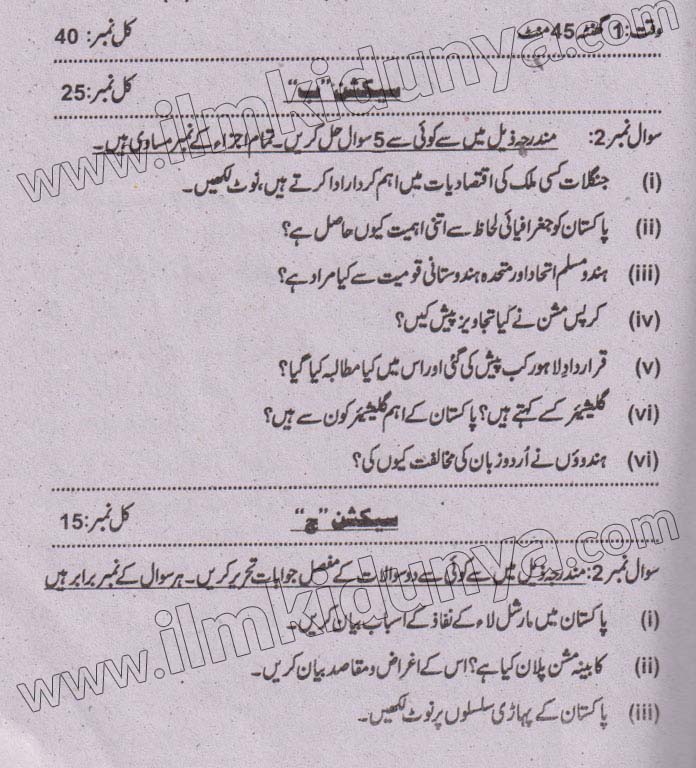 وقت: 1 گھنٹہ 45 منٹ کل نمبر: 40
سیکشن "ب" کل نمبر: 25
سوال نمبر 2: مندرجہ ذیل میں سے کوئی سے 5 سوال حل کریں۔ تمام اجزاء کے نمبر مساوی ہیں۔
(i) جنگلات کسی ملک کی اقتصادیات میں اہم کردار ادا کرتے ہیں، نوٹ لکھیں۔
(ii) پاکستان کو جغرافیائی لحاظ سے اتنی اہمیت کیوں حاصل ہے؟
(iii) ہندو مسلم اتحاد اور متحدہ ہندوستانی قومیت سے کیا مراد ہے؟
(iv) کرپس مشن نے کیا تجاویز پیش کیں؟
(v) قرارداد لاہور کب پیش کی گئی اور اس میں کیا مطالبہ کیا گیا؟
(vi) گلیشیئر کسے کہتے ہیں؟ پاکستان کے اہم گلیشیئر کون سے ہیں؟
(vi) ہندوؤں نے اُردو زبان کی مخالفت کیوں کی؟
سیکشن "ج" کل نمبر: 15
سوال نمبر 2: مندرجہ ذیل میں سے کوئی سے دو سوالات کے مفصل جوابات تحریر کریں۔ ہر سوال کے نمبر برابر ہیں
(i) پاکستان میں مارشل لاء کے نفاذ کے اسباب بیان کریں۔
(ii) کابینہ مشن پلان کیا ہے؟ اس کے اغراض و مقاصد بیان کریں۔
(iii) پاکستان کے پہاڑی سلسلوں پر نوٹ لکھیں۔
www.ilmkidunya.com
www.ilmkidunya.com